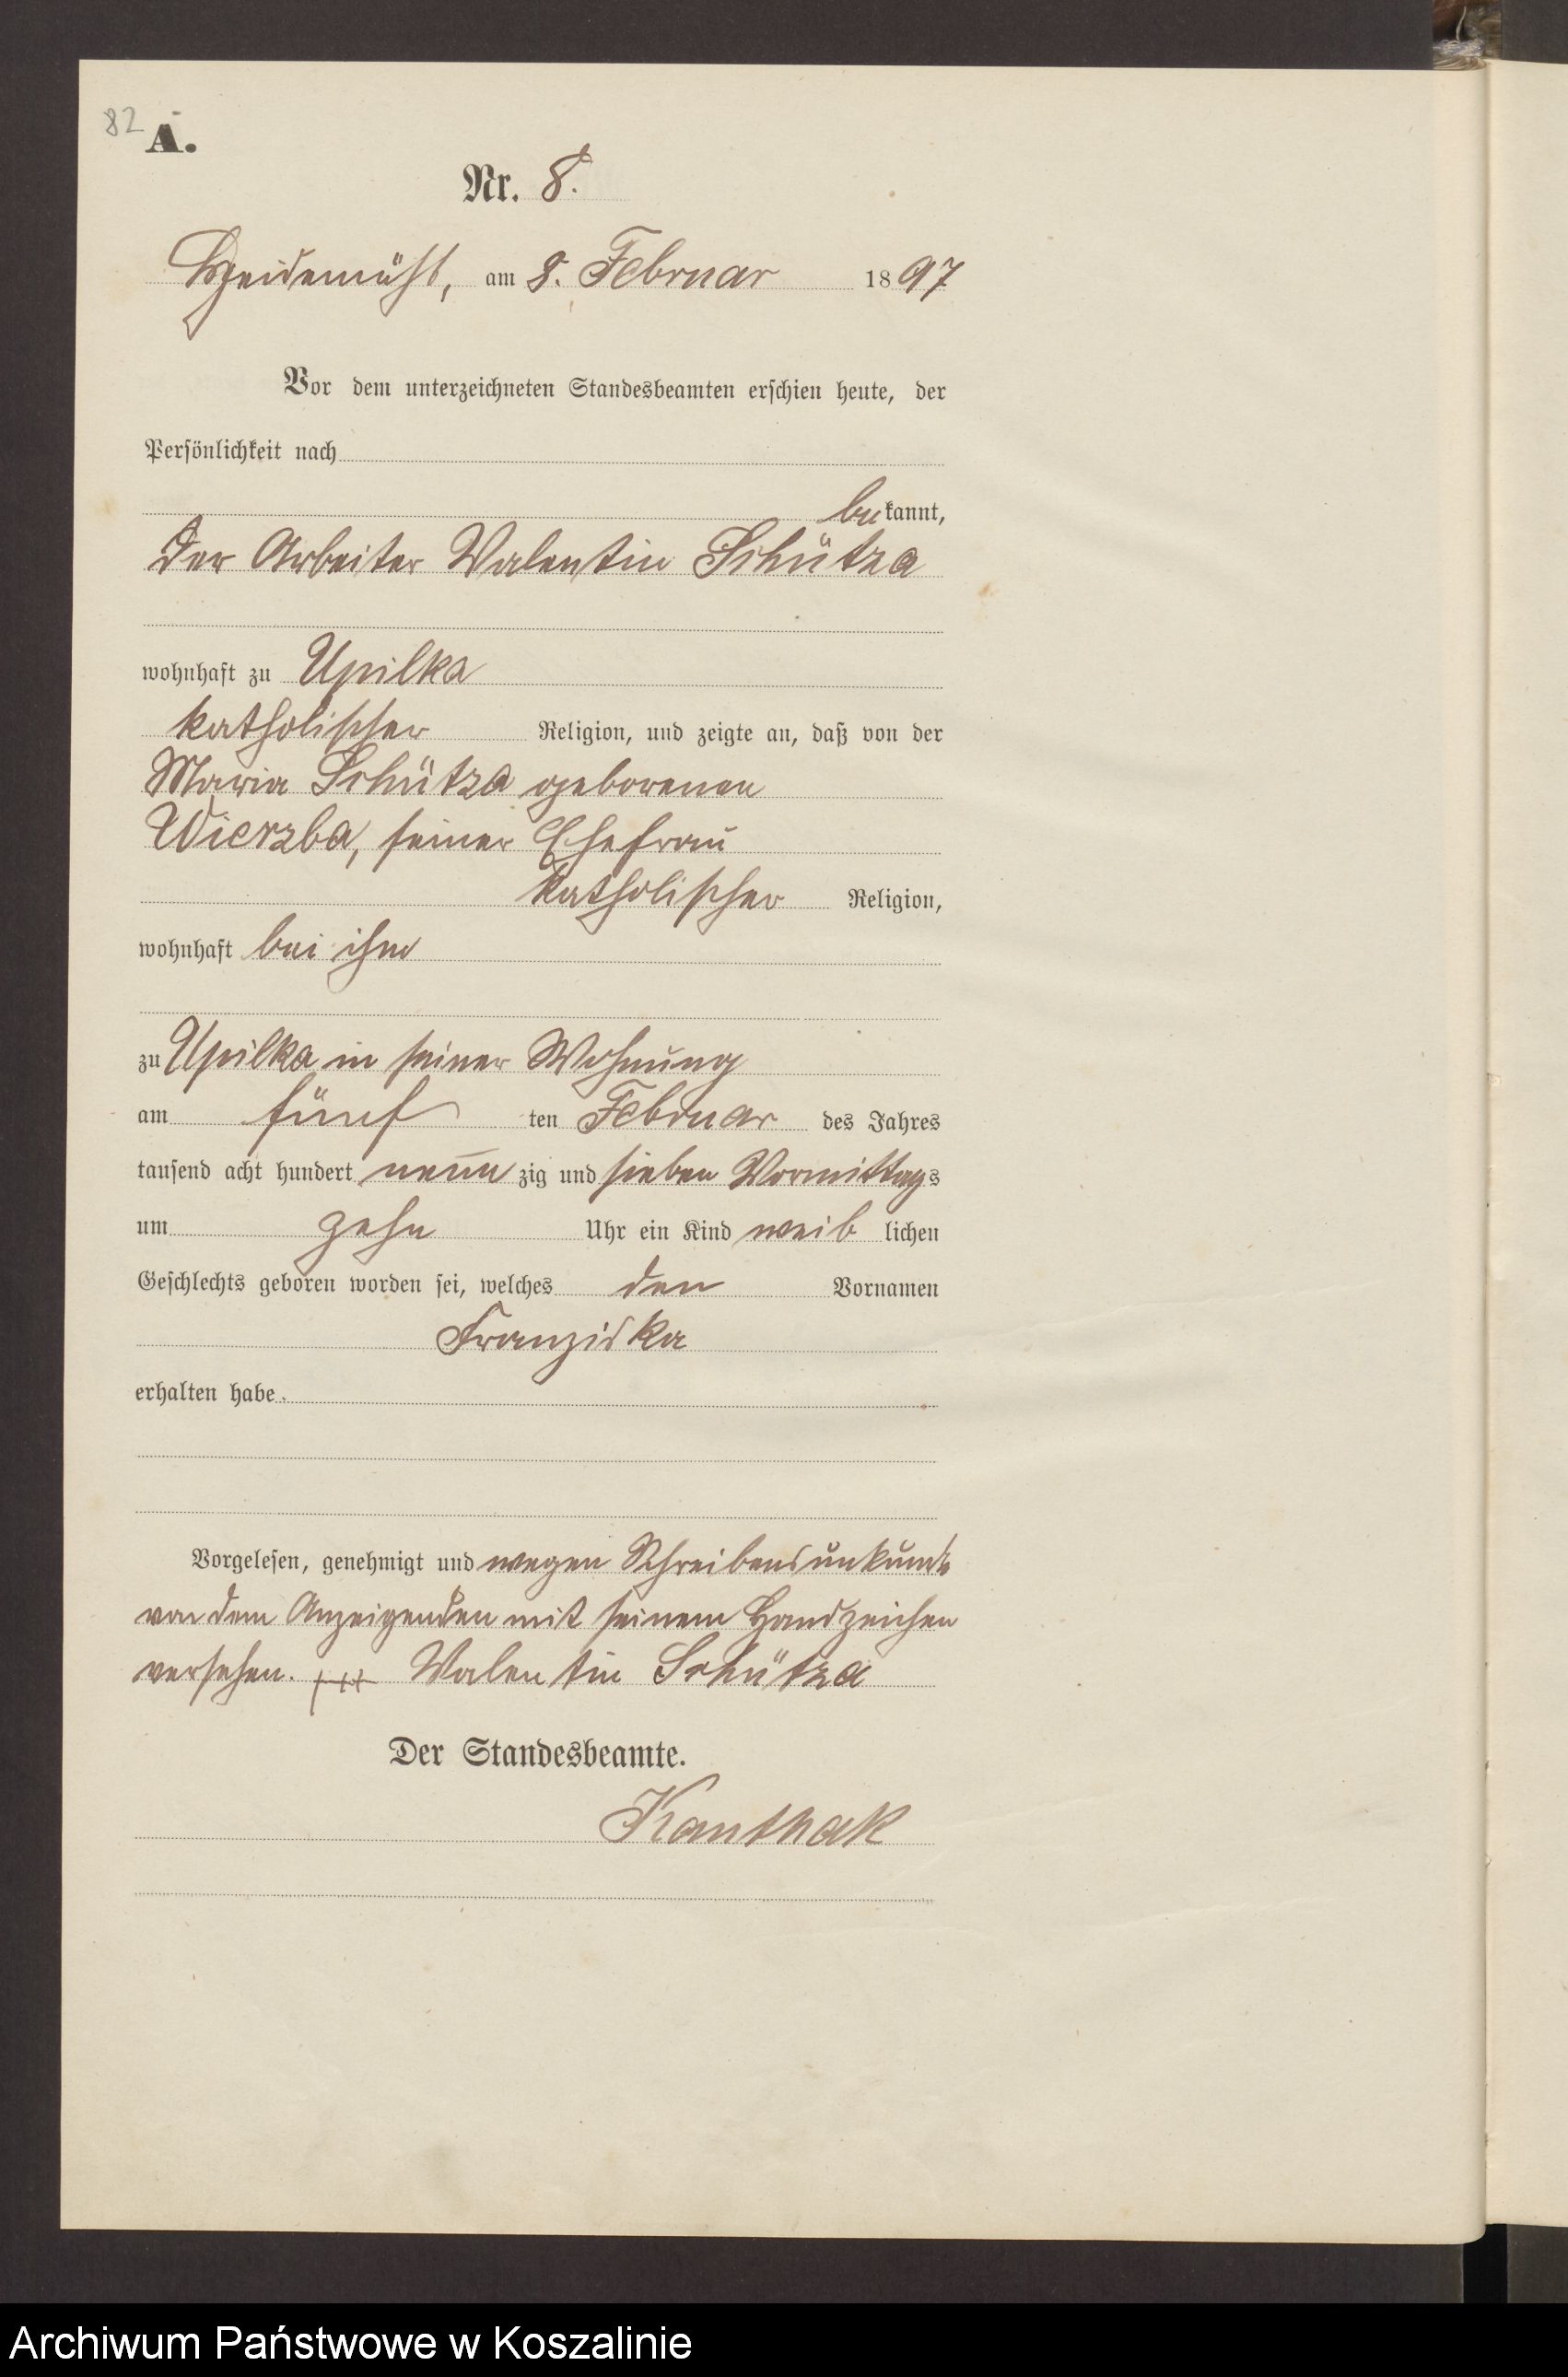 82 A.
Nr. 8.
Heidemühl, am 8. Februar 1897
Vor dem unterzeichneten Standesbeamten erschien heute, der
Persönlichkeit nach
bekannt,
der Arbeiter Valentin Schütza
wohnhaft zu Upilka
katholischer Religion, und zeigte an, daß von der
Maria Schütza geborenen
Wierzba, seiner Ehefrau
katholischer Religion,
wohnhaft bei ihm
zu Upilka in seiner Wohnung
am fünf ten Februar des Jahres
tausend acht hundert neun zig und sieben Vormittags
um zehn Uhr ein Kind weib lichen
Geschlechts geboren worden sei, welches den Vornamen
Franziska
erhalten habe.
Vorgelesen, genehmigt und wegen Schreibensunkunde
von dem Anzeigenden mit seinem Handzeichen
versehen. +++ Valentin Schütza
Der Standesbeamte.
Kanthak
Archiwum Państwowe w Koszalinie